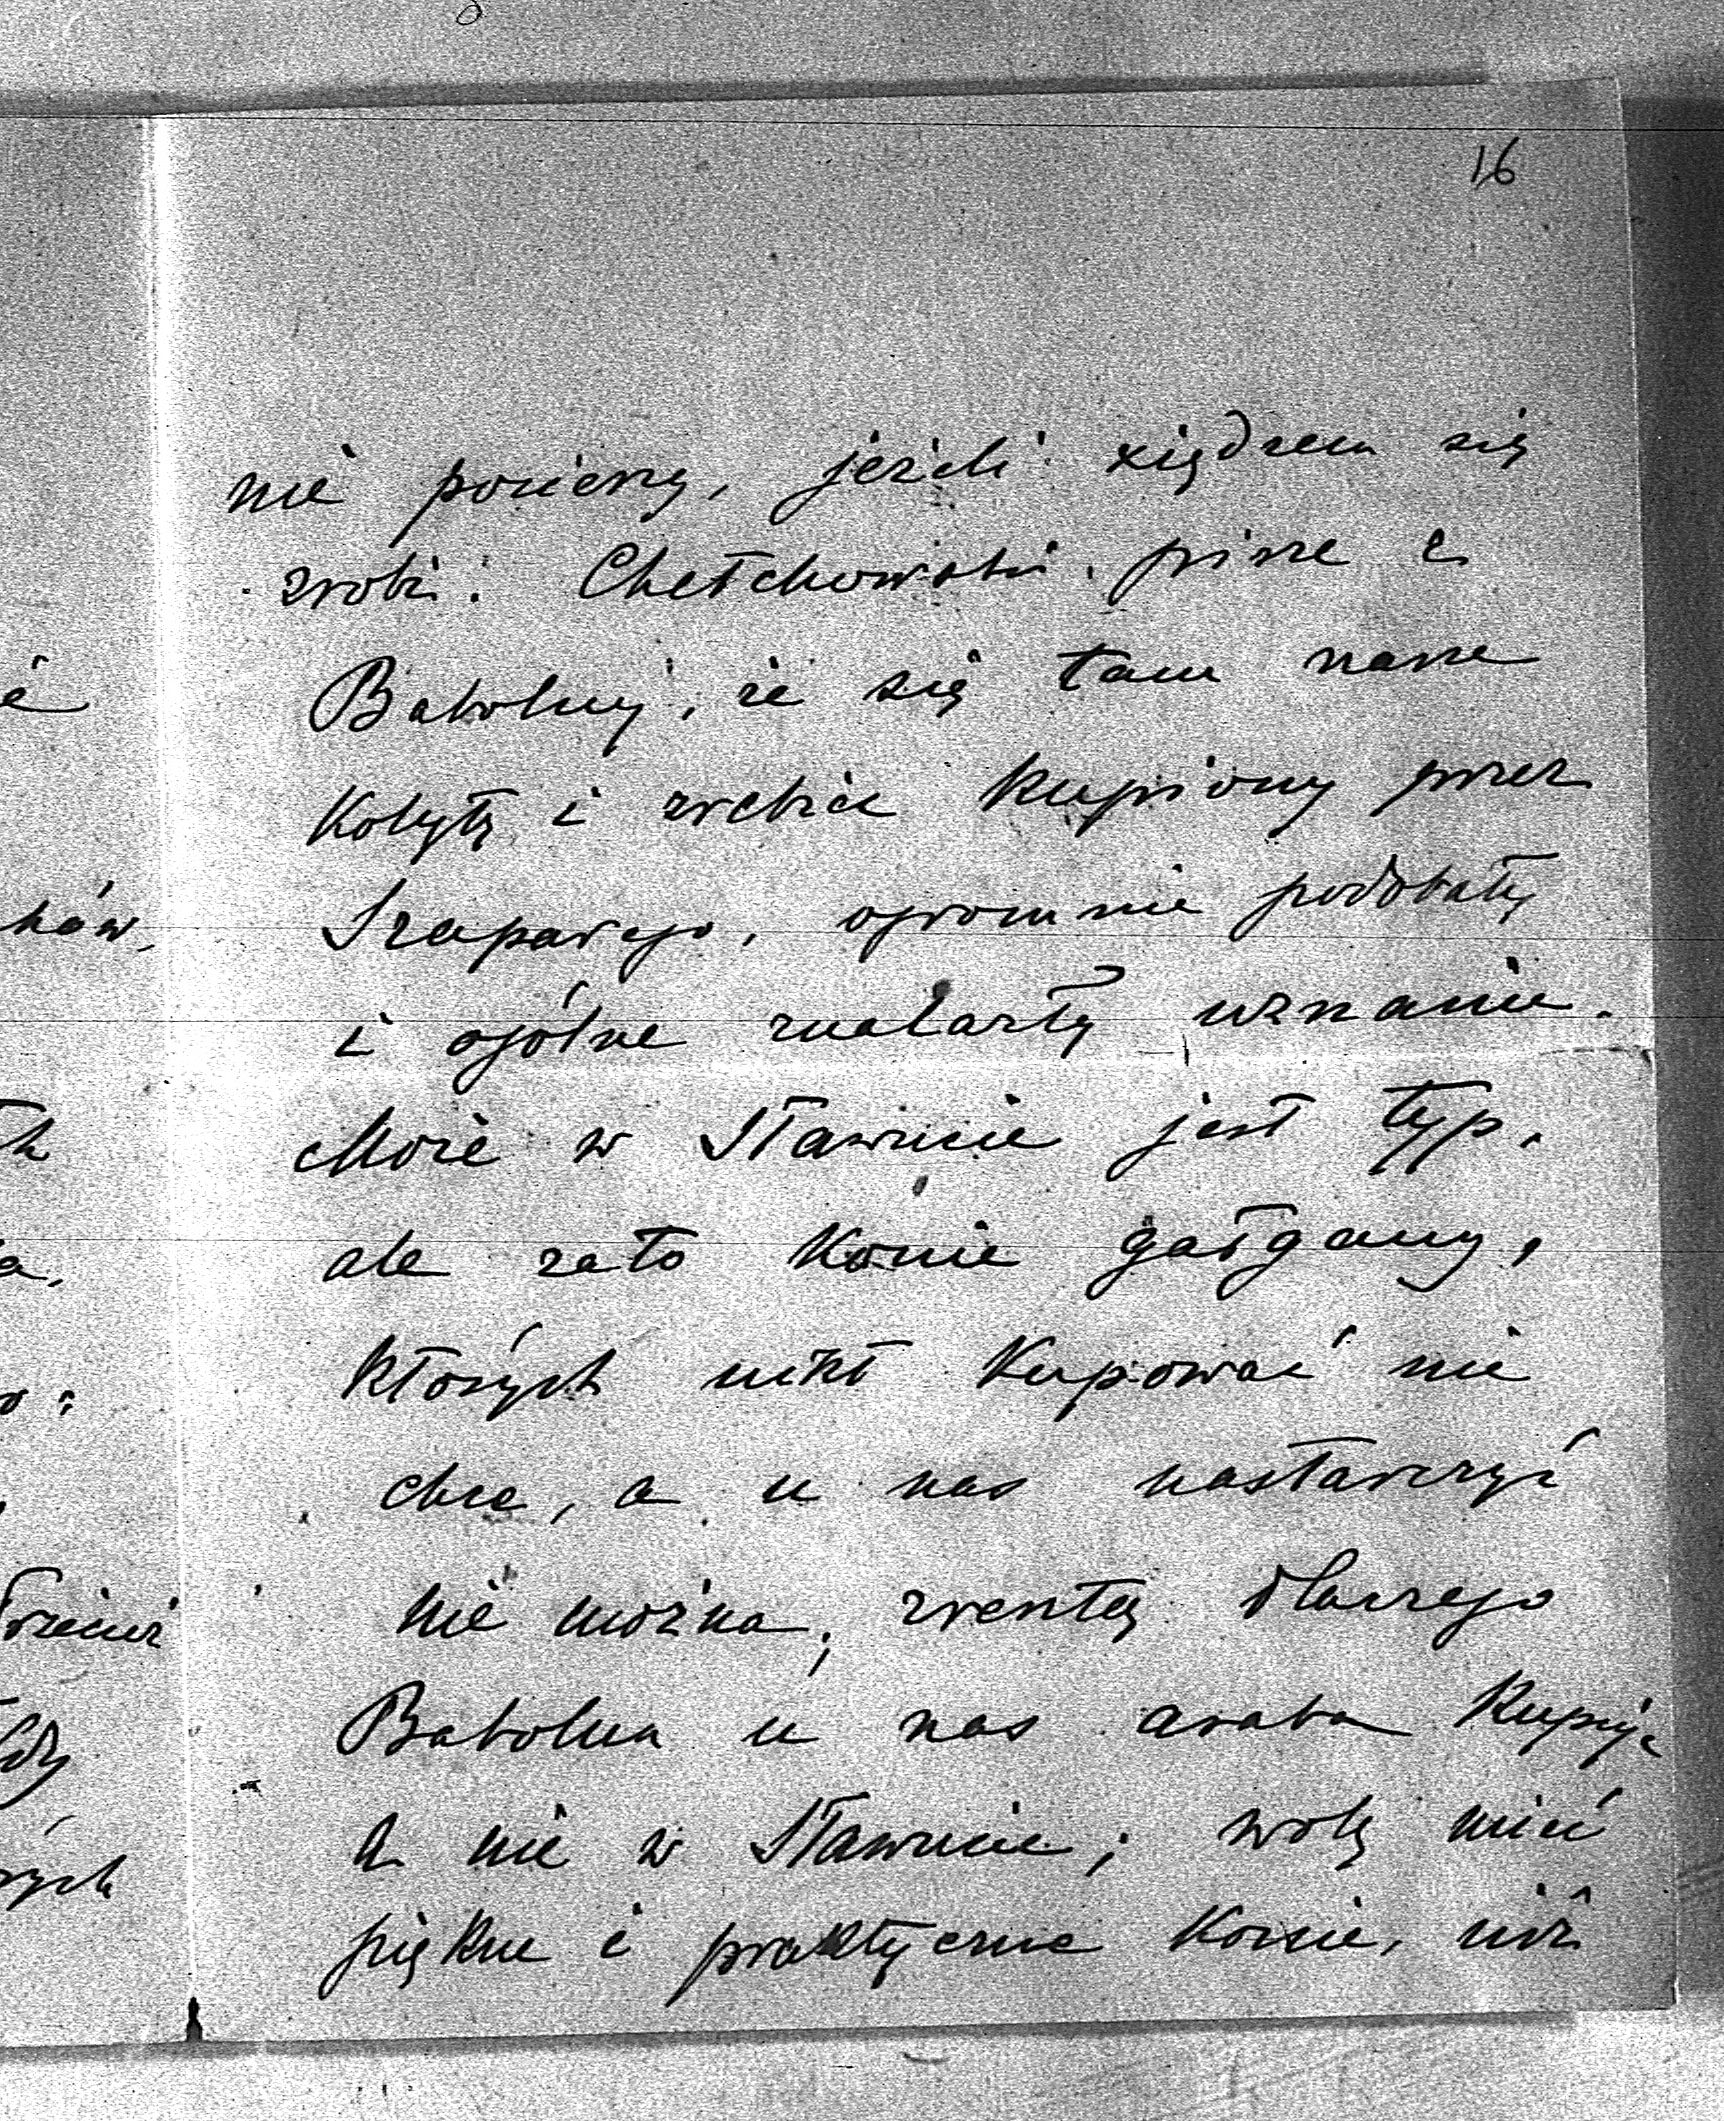 16
nie pocieszy, jeżeli xiędzem się
zrobi. Chełchowski pisze z
Babolny, że się tam nasze
Kobyły i źrebiec kupiony przez
Szaparego, ogromnie podobały
i ogólne znalazły uznanie.
Może w Sławucie jest typ,
ale zato Konie gałgany,
których nikt Kupować nie
chce, a u nas nastarczyć
nie można; zresztą dlaczego
Babolna u nas araba Kupuje
a nie w Sławucie; wolę mieć
piękne i praktyczne Konie, niż
ków,
a.
rych